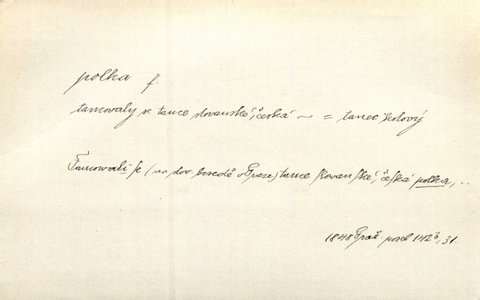 polka f.
tancovaly se tance slovanské, česká ~ = tanec kolový
Tancowali se (na slov. besedě w Praze) tance slowanské, česká polka, ..
1848 Praž. posel 142b, 31